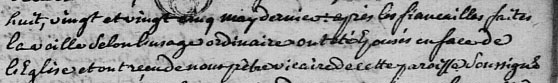 huit, vingt et vingt cinq may dernier et après les fiancailles faites
la veille selon l'usage ordinaire ont été Epousés en face de
l'Eglise et ont reçu de nous p̃bre vicaire de cette paroisse soussigné